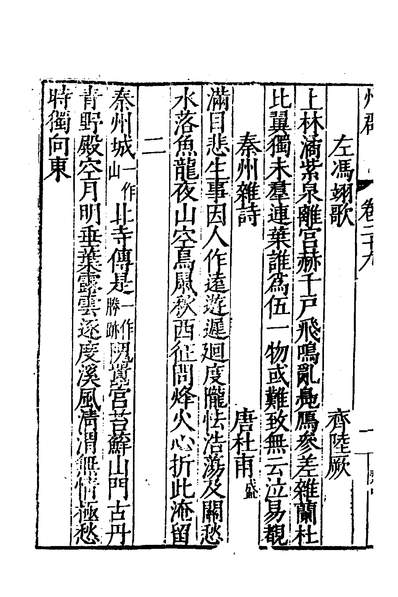 卷二十九
左馮翊歌　齊陸厥
上林滴紫泉離宮赫千戶飛鳴亂鳧鴈參差雜蘭杜
比翼獨未羣連葉誰為伍一物或難致無云泣易覩
秦州雜詩　唐杜甫盛
滿目悲生事因人作遠遊遲迴度隴怯浩蕩及關愁
水落魚龍夜山空鳥鼠秋西征問烽火心折此淹留
二
秦州城一作山北寺傳是一作勝跡隗囂宮苔蘚山門古丹
青野殿空月明垂葉露雲逐度溪風清渭無情極愁
時獨向東